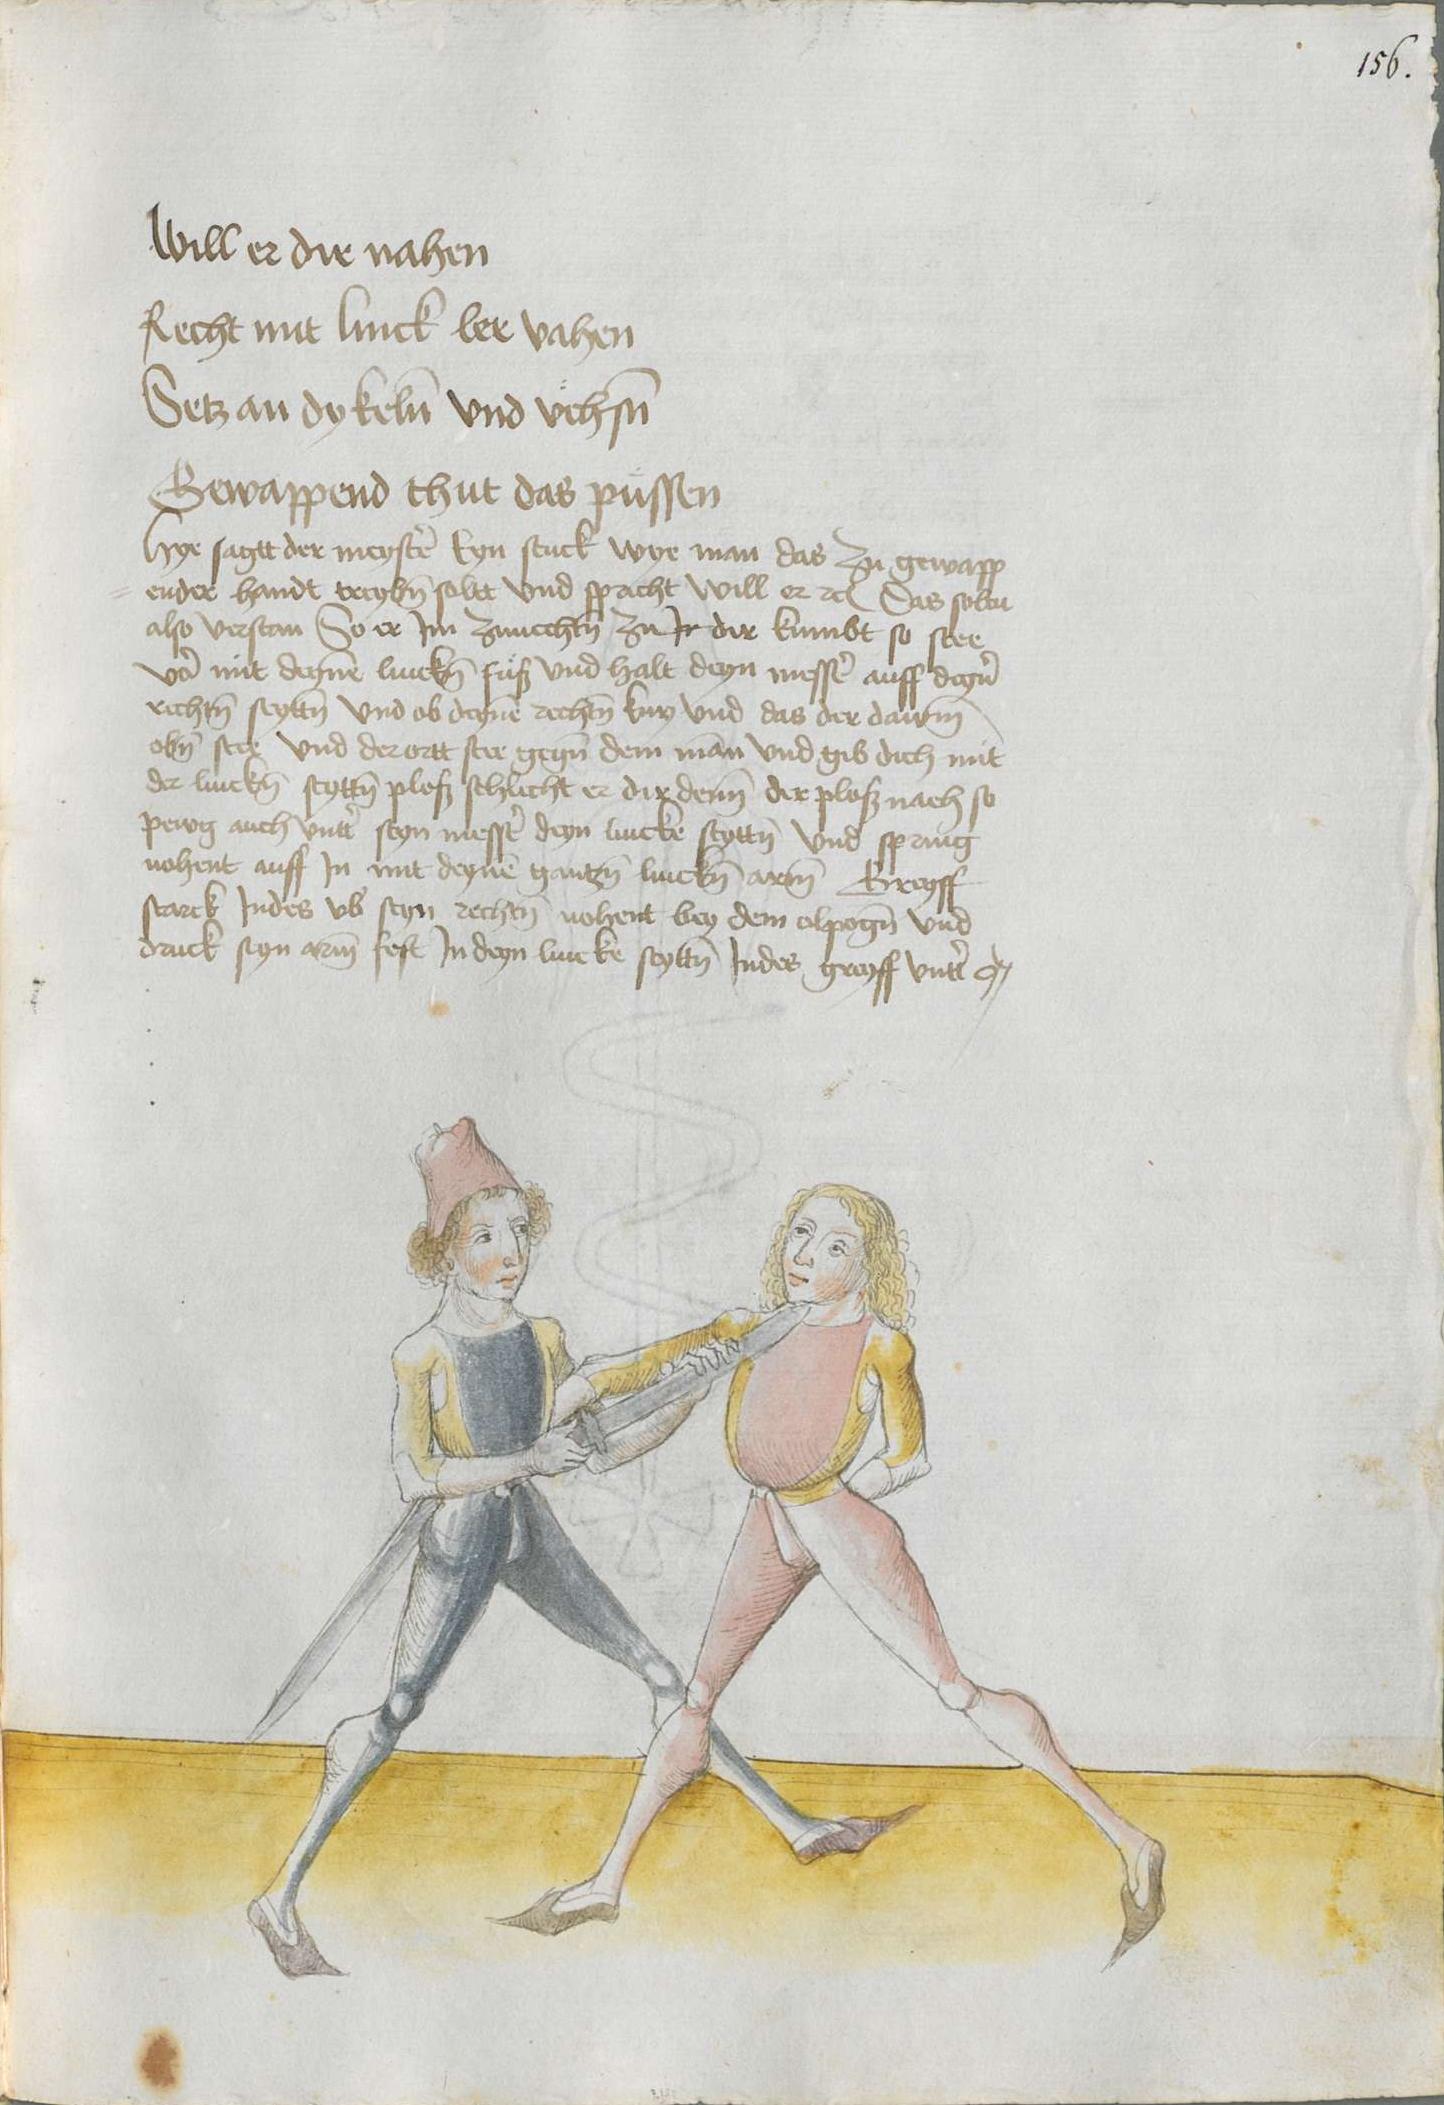 156.
Will er dir nahen
Recht mit linck ler vahen
Setz an dy keln̄ vnd vehsn̄
Gewappend thut das püssen
Hye sagtt der meyster̄ Eyn stuck wye man das zu gewapp
ender handt treybn̄ soltt vnd spricht Will er rc Das soltu
also verstan So er Im zuuechtn̄ zu Ir dir kumbt so stee
vor̄ mit deyne linckn̄ fuß vnd halt deyn messer̄ auff deyn̄
rechtn̄ seyttn̄ vnd ob deyne rechtn̄ kny vnd das der daum̄
obn̄ stee vnd der ortt stee gegn̄ dem man vnd gib dich mit
der linckn̄ seyttn̄ ploß schlecht er dir denn̄ der ploß nach so
pewg auch vntter̄ seyn messer̄ deyn lincke seyttn̄ vnd spring
nohent auff In mit deyne gantzn̄ linckn̄ arm̄ Greyff
starck Indes vber̄ seyn rechtn̄ nohent bey dem elpogn̄ vnd
druck seyn arm̄ fest In deyn lincke seyttn̄ Indes greyff vntter̄